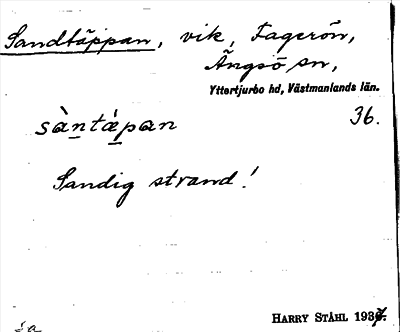 Sandtäppan, vik, Fagerön,
Ängsö sn,
Yttertjurbo hd, Västmanlands län.
sàntäpan 36.
Sandig strand!
HARRY STÅHL 1937.